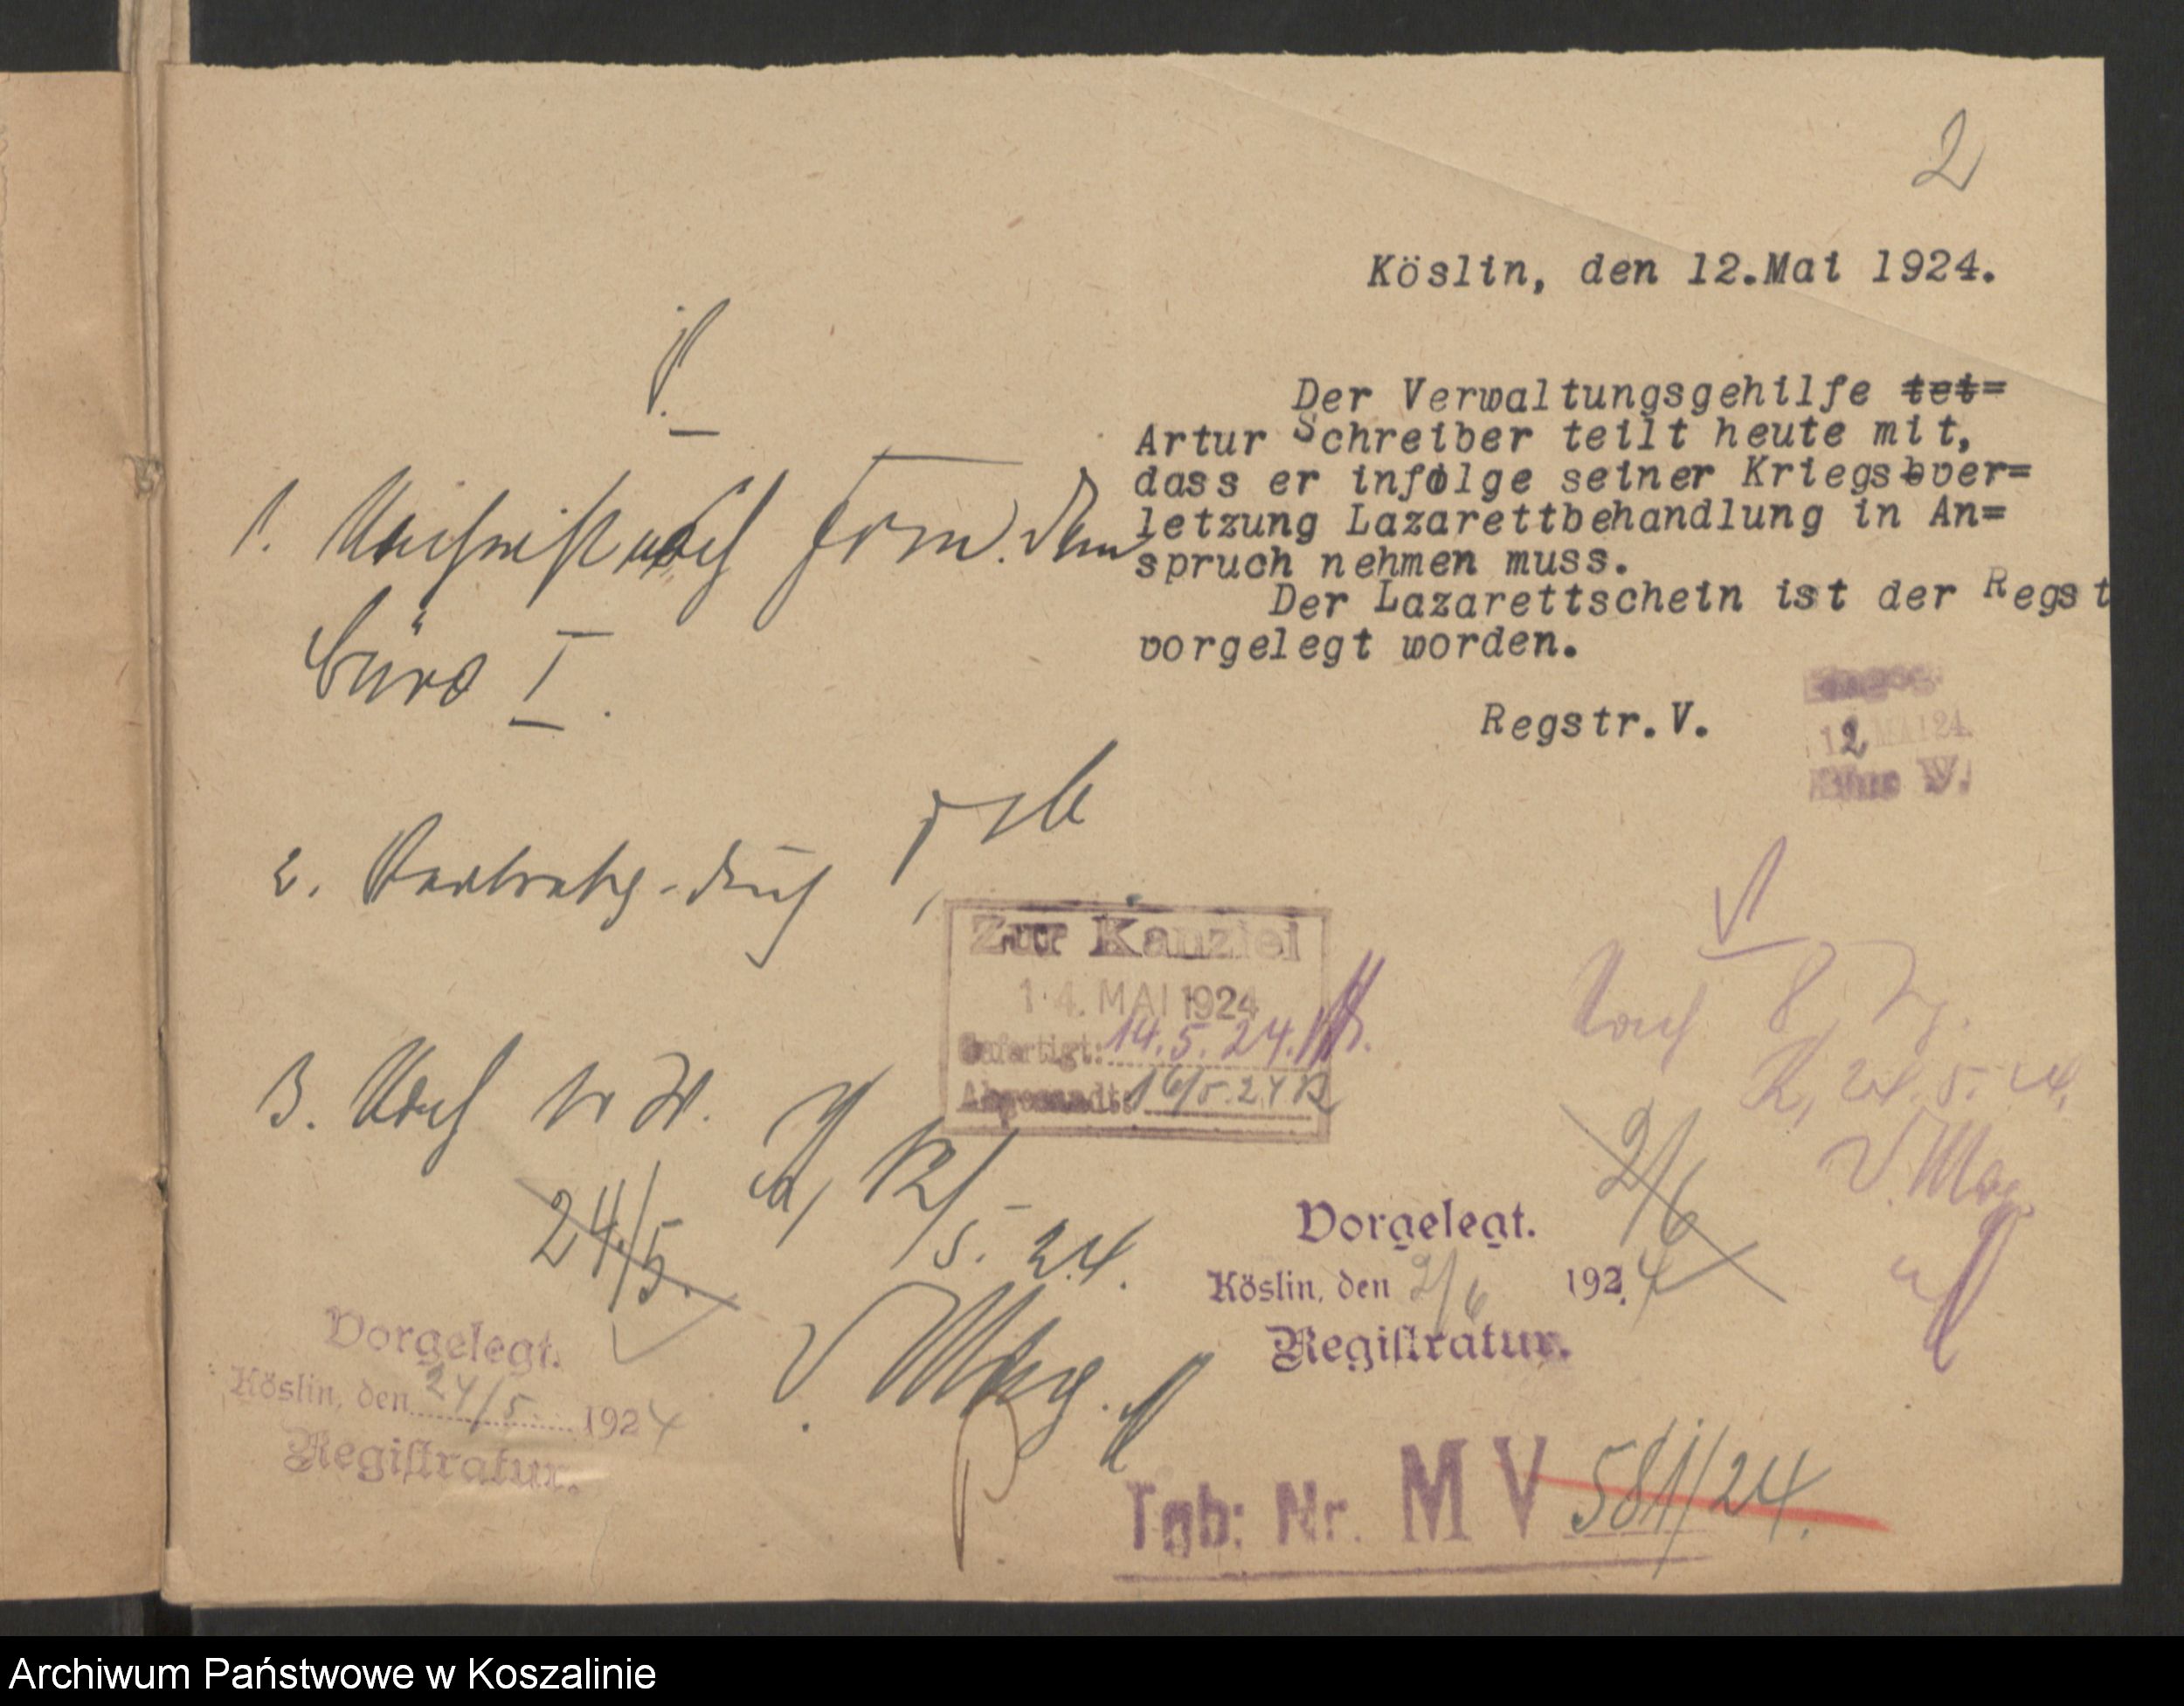 2
Köslin, den 12.Mai 1924.
Der Verwaltungsgehilfe tei=
Artur Schreiber teilt heute mit,
dass er infolge seiner Kriegsbver=
letzung Lazarettbehandlung in An=
spruch nehmen muss.
Der Lazarettschein ist der Regst
vorgelegt worden.
Regstr.V.
12 MAI 24.
V.
1. Nachricht nach Form. dem
Büro I.
2.
3. Nach 10 W.
K, 12/5. 24.
V Mag.
24/5.
Zur Kanzlei
14. MAI 1924
Gefertigt: 14.5.24.
Abgesandt: 16/5.24
V
Nach 8 Tg.
K, 24.5.24.
V. Mag.
2/6
Vorgelegt.
Köslin, den 2/6 1924
Registratur.
Vorgelegt.
Köslin, den 24/5. 1924
Registratur.
Tgb: Nr. M V 581/24.
Archiwum Państwowe w Koszalinie